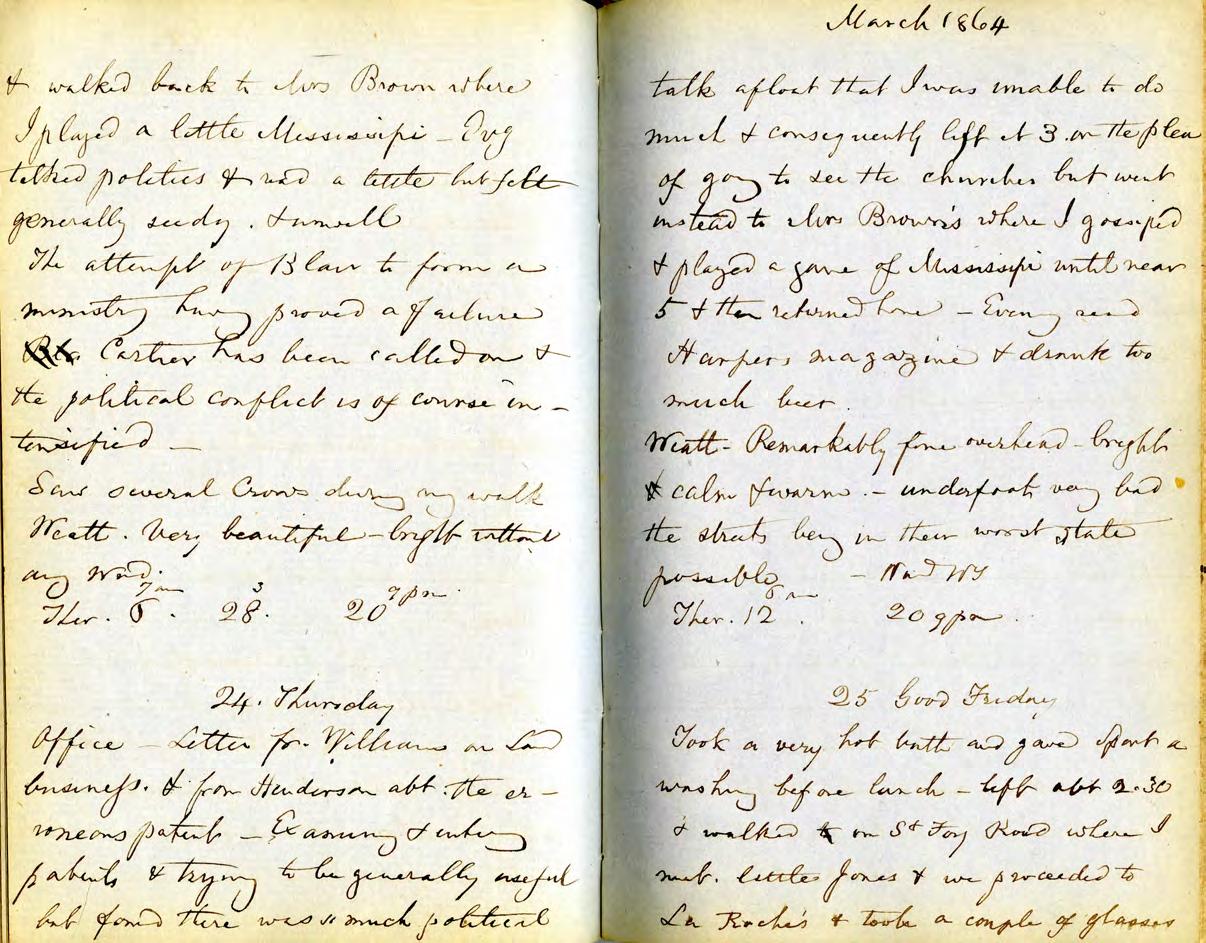 & walked back to Mrs Brown where
I played a little Mississipi - Evg
talked politics & read a little but felt
generally seedy. & unwell
The attempt of Blair to form a
ministry having proved a failure
Cartier has been called on &
the political conflict is of course in-
tensified -
Saw several Crows during my walk
Weath. Very beautiful - bright without
any wind.
7 am 3 9 pm
Ther. 28. 20
24. Thursday
Office - Letter fr. Williams on Land
business. & from Henderson abt. the er-
roneous patent - Examining & entering
patents & trying to be generally useful
but found there was so much political
March 1864
talk afloat that I was unable to do
much & consequently left at 3. on the plea
of going to see the churches but went
instead to Mrs Brown's where I gossiped
& played a game of Mississipi until near
5 & then returned home - Evening read
Harpers magazine & drank too
much beer.
Weath - Remarkably fine overhead - bright
& calm & warm. - underfoot very bad
the streets being in their worst state
possible - Wind
Ther. 12. 20 9 pm
25 Good Friday
Took a very hot bath and gave Sport a
washing before lunch - left abt 2.30
& walked on St Foy Road where I
met. little Jones & we proceeded to
La Roche's & took a couple of glasses